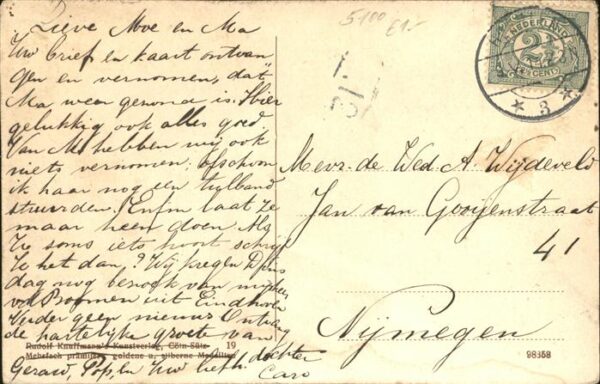 5100
£1.-
Lieve Moe en Ma
Uw brief en kaart ontvan
gen en vernomen, dat
Ma weer gezond is. Hier
gelukkig ook alles goed.
Van M hebben wij ook
niets vernomen, ofschoon
ik haar nog een tulband
stuurden. Enfin laat ze
maar heen doen. Als
ze soms iets hoort schrijf
ze het dan? Wij kregen Dins
dag nog bezoek van
v.d. Boomen uit Eindhoven
Verder geen nieuws Ontvang
de hartelijke groete van
Gerard, Pop, en Uw liefh. dochter
Caro
NEDERLAND
2½
CENT
3
Mevr. de Wed. A. Wijdeveld
Jan van Gooyenstraat
41
Nijmegen
Rudolf Kauffmann's Kunstverlag, Cöln-Sülz 19
Mehrfach prämiirt, goldene u. silberne Medaillen
98358